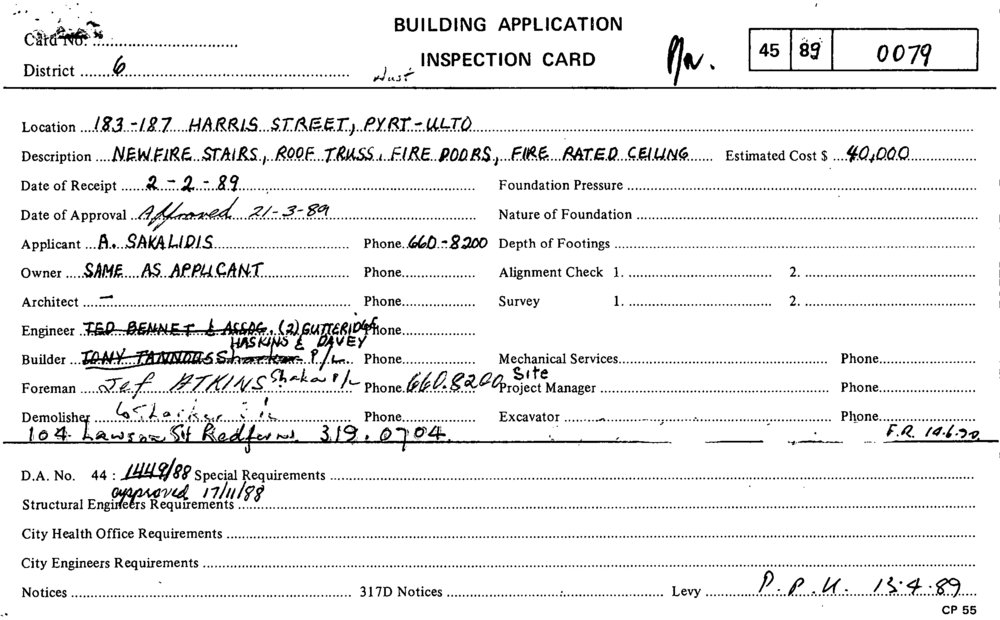 BUILDING APPLICATION
Card No.
INSPECTION CARD
45 89 0079
District 6
Location 183-187 HARRIS STREET, PYRT-ULTO
Description NEW FIRE STAIRS, ROOF TRUSS, FIRE DOORS, FIRE RATED CEILING Estimated Cost $ 40,000
Date of Receipt 2-2-89 Foundation Pressure
Date of Approval Approved 21-3-89 Nature of Foundation
Applicant A. SAKALIDIS Phone 660-8200 Depth of Footings
Owner SAME AS APPLICANT Phone Alignment Check 1. 2.
Architect — Phone Survey 1. 2.
Engineer TED BENNET & ASSOC. (2) GUTTERIDGE Phone
HASKINS & DAVEY
Builder TONY TANNOUS P/L Phone Mechanical Services Phone
Foreman Jef ATKINS P/L Phone 660.8200 Site Project Manager Phone
Demolisher Phone Excavator Phone
104 Lawson St Redfern 319.0704 F.R. 14.6.90
D.A. No. 44 : 1449/88 Special Requirements
approved 17/11/88
Structural Engineers Requirements
City Health Office Requirements
City Engineers Requirements
Notices 317D Notices Levy 13.4.89
CP 55